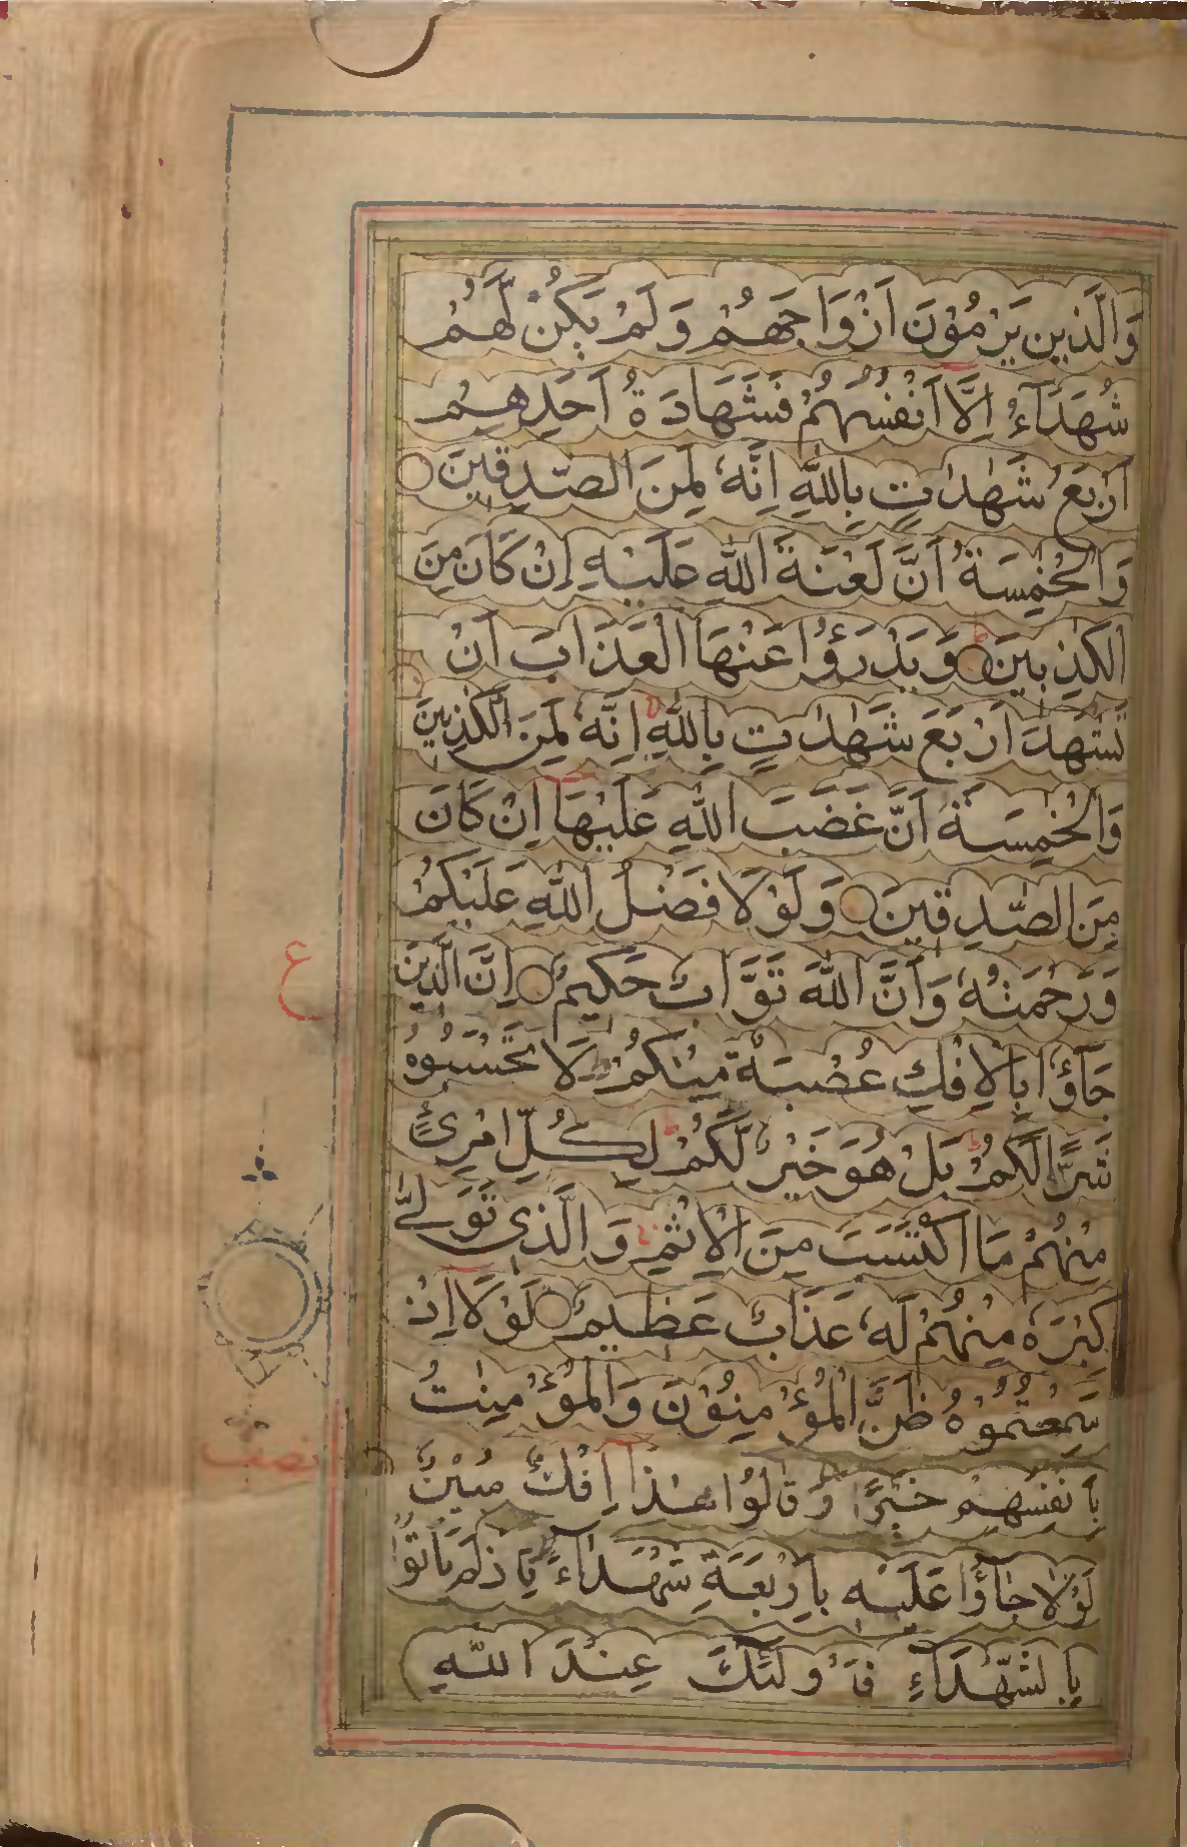 وَالَّذِينَ يَرْمُوْنَ اَزْوَاجَهُمْ وَلَمْ يَكُنْ لَّهُمْ
شُهَدَآءُ اِلَّا اَنْفُسُهُمْ فَشَهَادَةُ اَحَدِهِمْ
اَرْبَعُ شَهٰدٰتٍ بِاللّٰهِ اِنَّهٗ لَمِنَ الصّٰدِقِينَ
وَالْخٰمِسَةُ اَنَّ لَعْنَةَ اللّٰهِ عَلَيْهِ اِنْ كَانَ مِنَ
الْكٰذِبِينَ وَيَدْرَؤُا عَنْهَا الْعَذَابَ اَنْ
تَشْهَدَ اَرْبَعَ شَهٰدٰتٍ بِاللّٰهِ اِنَّهٗ لَمِنَ الْكٰذِبِينَ
وَالْخٰمِسَةَ اَنَّ غَضَبَ اللّٰهِ عَلَيْهَا اِنْ كَانَ
مِنَ الصّٰدِقِينَ وَلَوْلَا فَضْلُ اللّٰهِ عَلَيْكُمْ
وَرَحْمَتُهٗ وَاَنَّ اللّٰهَ تَوَّابٌ حَكِيمٌ اِنَّ الَّذِينَ
ع
جَآؤُا بِالْاِفْكِ عُصْبَةٌ مِنْكُمْ لَا تَحْسَبُوهُ
شَرًّا لَكُمْ بَلْ هُوَ خَيْرٌ لَّكُمْ لِكُلِّ امْرِئٍ
مِنْهُمْ مَا اكْتَسَبَ مِنَ الْاِثْمِ وَالَّذِي تَوَلّٰى
كِبْرَهٗ مِنْهُمْ لَهٗ عَذَابٌ عَظِيمٌ لَوْلَا اِذْ
سَمِعْتُمُوْهُ ظَنَّ الْمُؤْمِنُوْنَ وَالْمُؤْمِنٰتُ
نصف
بِاَنْفُسِهِمْ خَيْرًا وَقَالُوْا هٰذَا اِفْكٌ مُبِيْنٌ
لَوْلَا جَآؤُا عَلَيْهِ بِاَرْبَعَةِ شُهَدَآءَ فَاِذْ لَمْ يَاْتُوْا
بِالشُّهَدَآءِ فَاُولٰئِكَ عِنْدَ اللّٰهِ